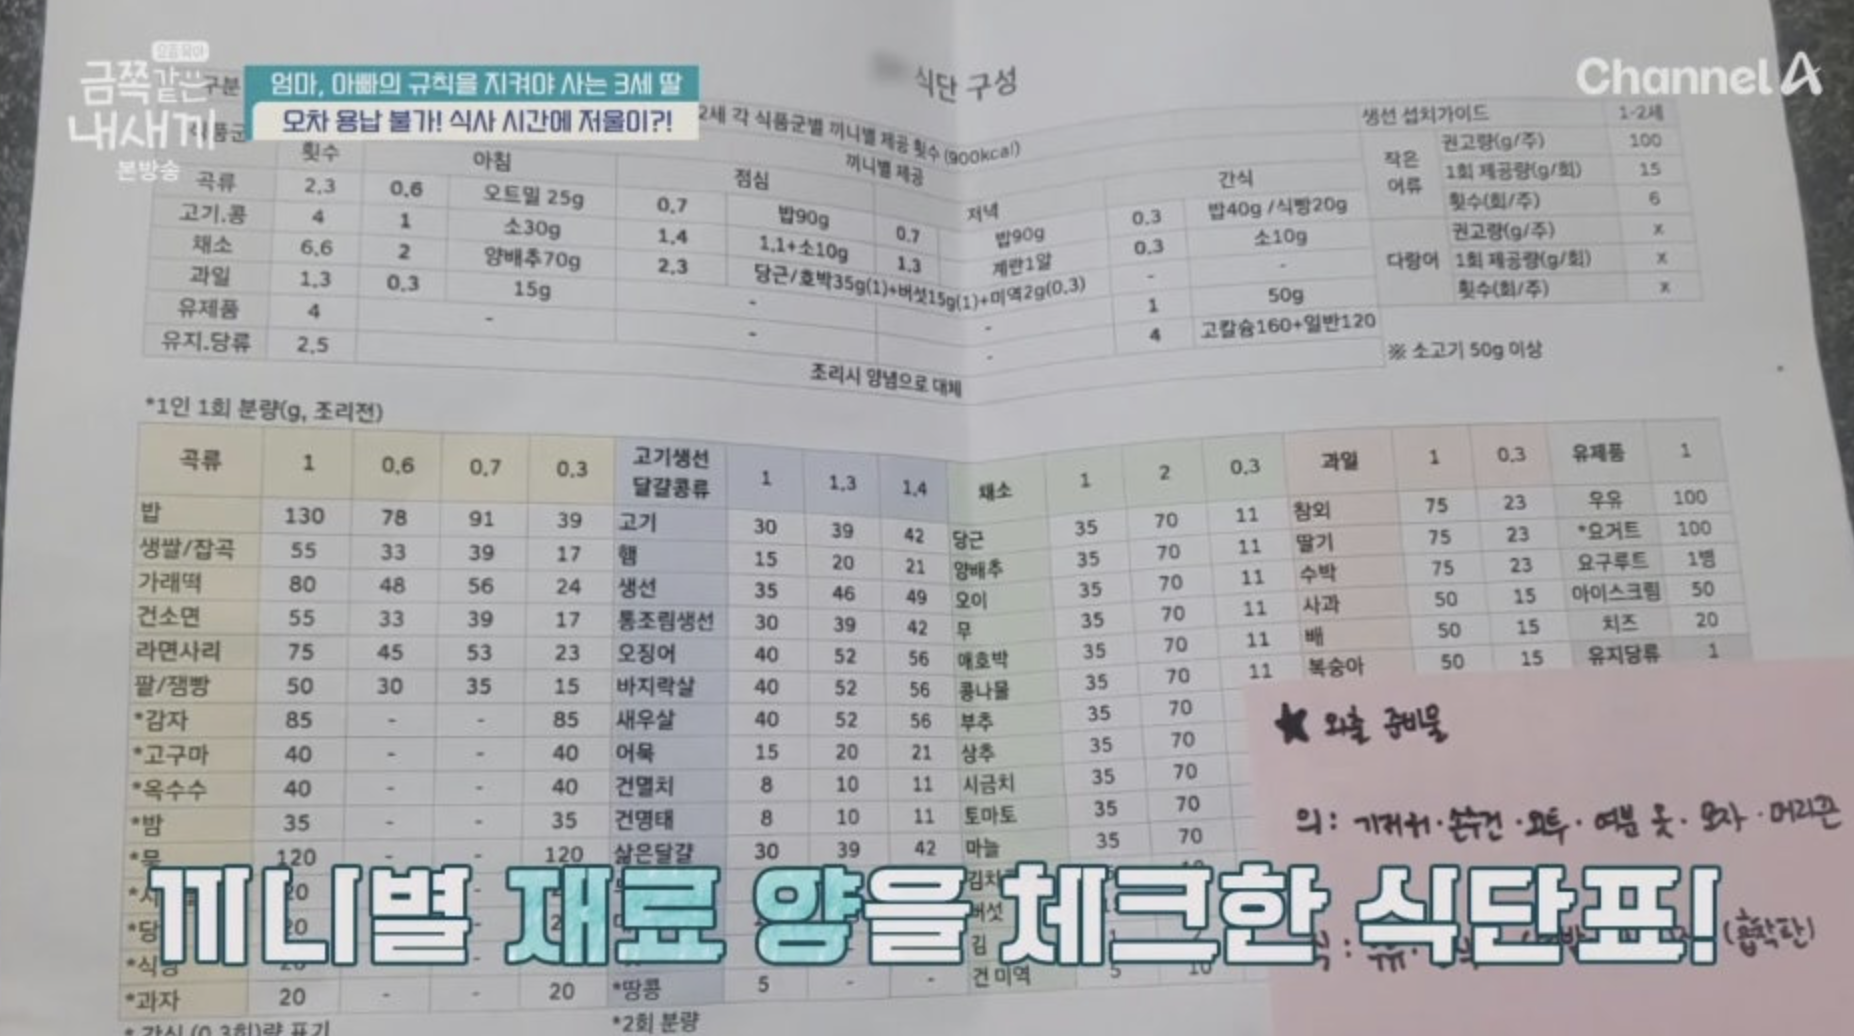 요즘 육아
금쪽같은
내새끼
본방송
엄마, 아빠의 규칙을 지켜야 사는 3세 딸
오차 용납 불가! 식사 시간에 저울이?!
Channel A
식단 구성
구분
2세 각 식품군별 끼니별 제공 횟수 (900kcal)
횟수 끼니별 제공
아침 점심 저녁 간식
곡류 2.3 0.6 오트밀 25g 0.7 밥90g 0.7 밥90g 0.3 밥40g /식빵20g
고기.콩 4 1 소30g 1.4 1.1+소10g 1.3 계란1알 0.3 소10g
채소 6.6 2 양배추70g 2.3 당근/호박35g(1)+버섯15g(1)+미역2g(0.3) - -
과일 1.3 0.3 15g - - 1 50g
유제품 4 - - - 4 고칼슘160+일반120
유지.당류 2.5 조리시 양념으로 대체
생선 섭치가이드 1-2세
작은 어류 권고량(g/주) 100
1회 제공량(g/회) 15
횟수(회/주) 6
다랑어 권고량(g/주) x
1회 제공량(g/회) x
횟수(회/주) x
※ 소고기 50g 이상
*1인 1회 분량(g, 조리전)
곡류 1 0.6 0.7 0.3 고기생선 달걀콩류 1 1.3 1.4 채소 1 2 0.3 과일 1 0.3 유제품 1
밥 130 78 91 39 고기 30 39 42 당근 35 70 11 참외 75 23 우유 100
생쌀/잡곡 55 33 39 17 햄 15 20 21 양배추 35 70 11 딸기 75 23 *요거트 100
가래떡 80 48 56 24 생선 35 46 49 오이 35 70 11 수박 75 23 요구루트 1병
건소면 55 33 39 17 통조림생선 30 39 42 무 35 70 11 사과 50 15 아이스크림 50
라면사리 75 45 53 23 오징어 40 52 56 애호박 35 70 11 배 50 15 치즈 20
팥/잼빵 50 30 35 15 바지락살 40 52 56 콩나물 35 70 11 복숭아 50 15 유지당류 1
*감자 85 - - 85 새우살 40 52 56 부추 35 70
*고구마 40 - - 40 어묵 15 20 21 상추 35 70
*옥수수 40 - - 40 건멸치 8 10 11 시금치 35 70
*밤 35 - - 35 건명태 8 10 11 토마토 35 70
*묵 120 - - 120 삶은달걀 30 39 42 마늘 35 70
김치
버섯
김
*과자 20 - - 20 *땅콩 5 - - 건미역 5 10
* 간식 (0.3회)량 표기
*2회 분량
★ 외출 준비물
의: 기저귀·손수건·외투·여분 옷·모자·머리끈
식: 우유·
(흡착판)
끼니별 재료 양을 체크한 식단표!